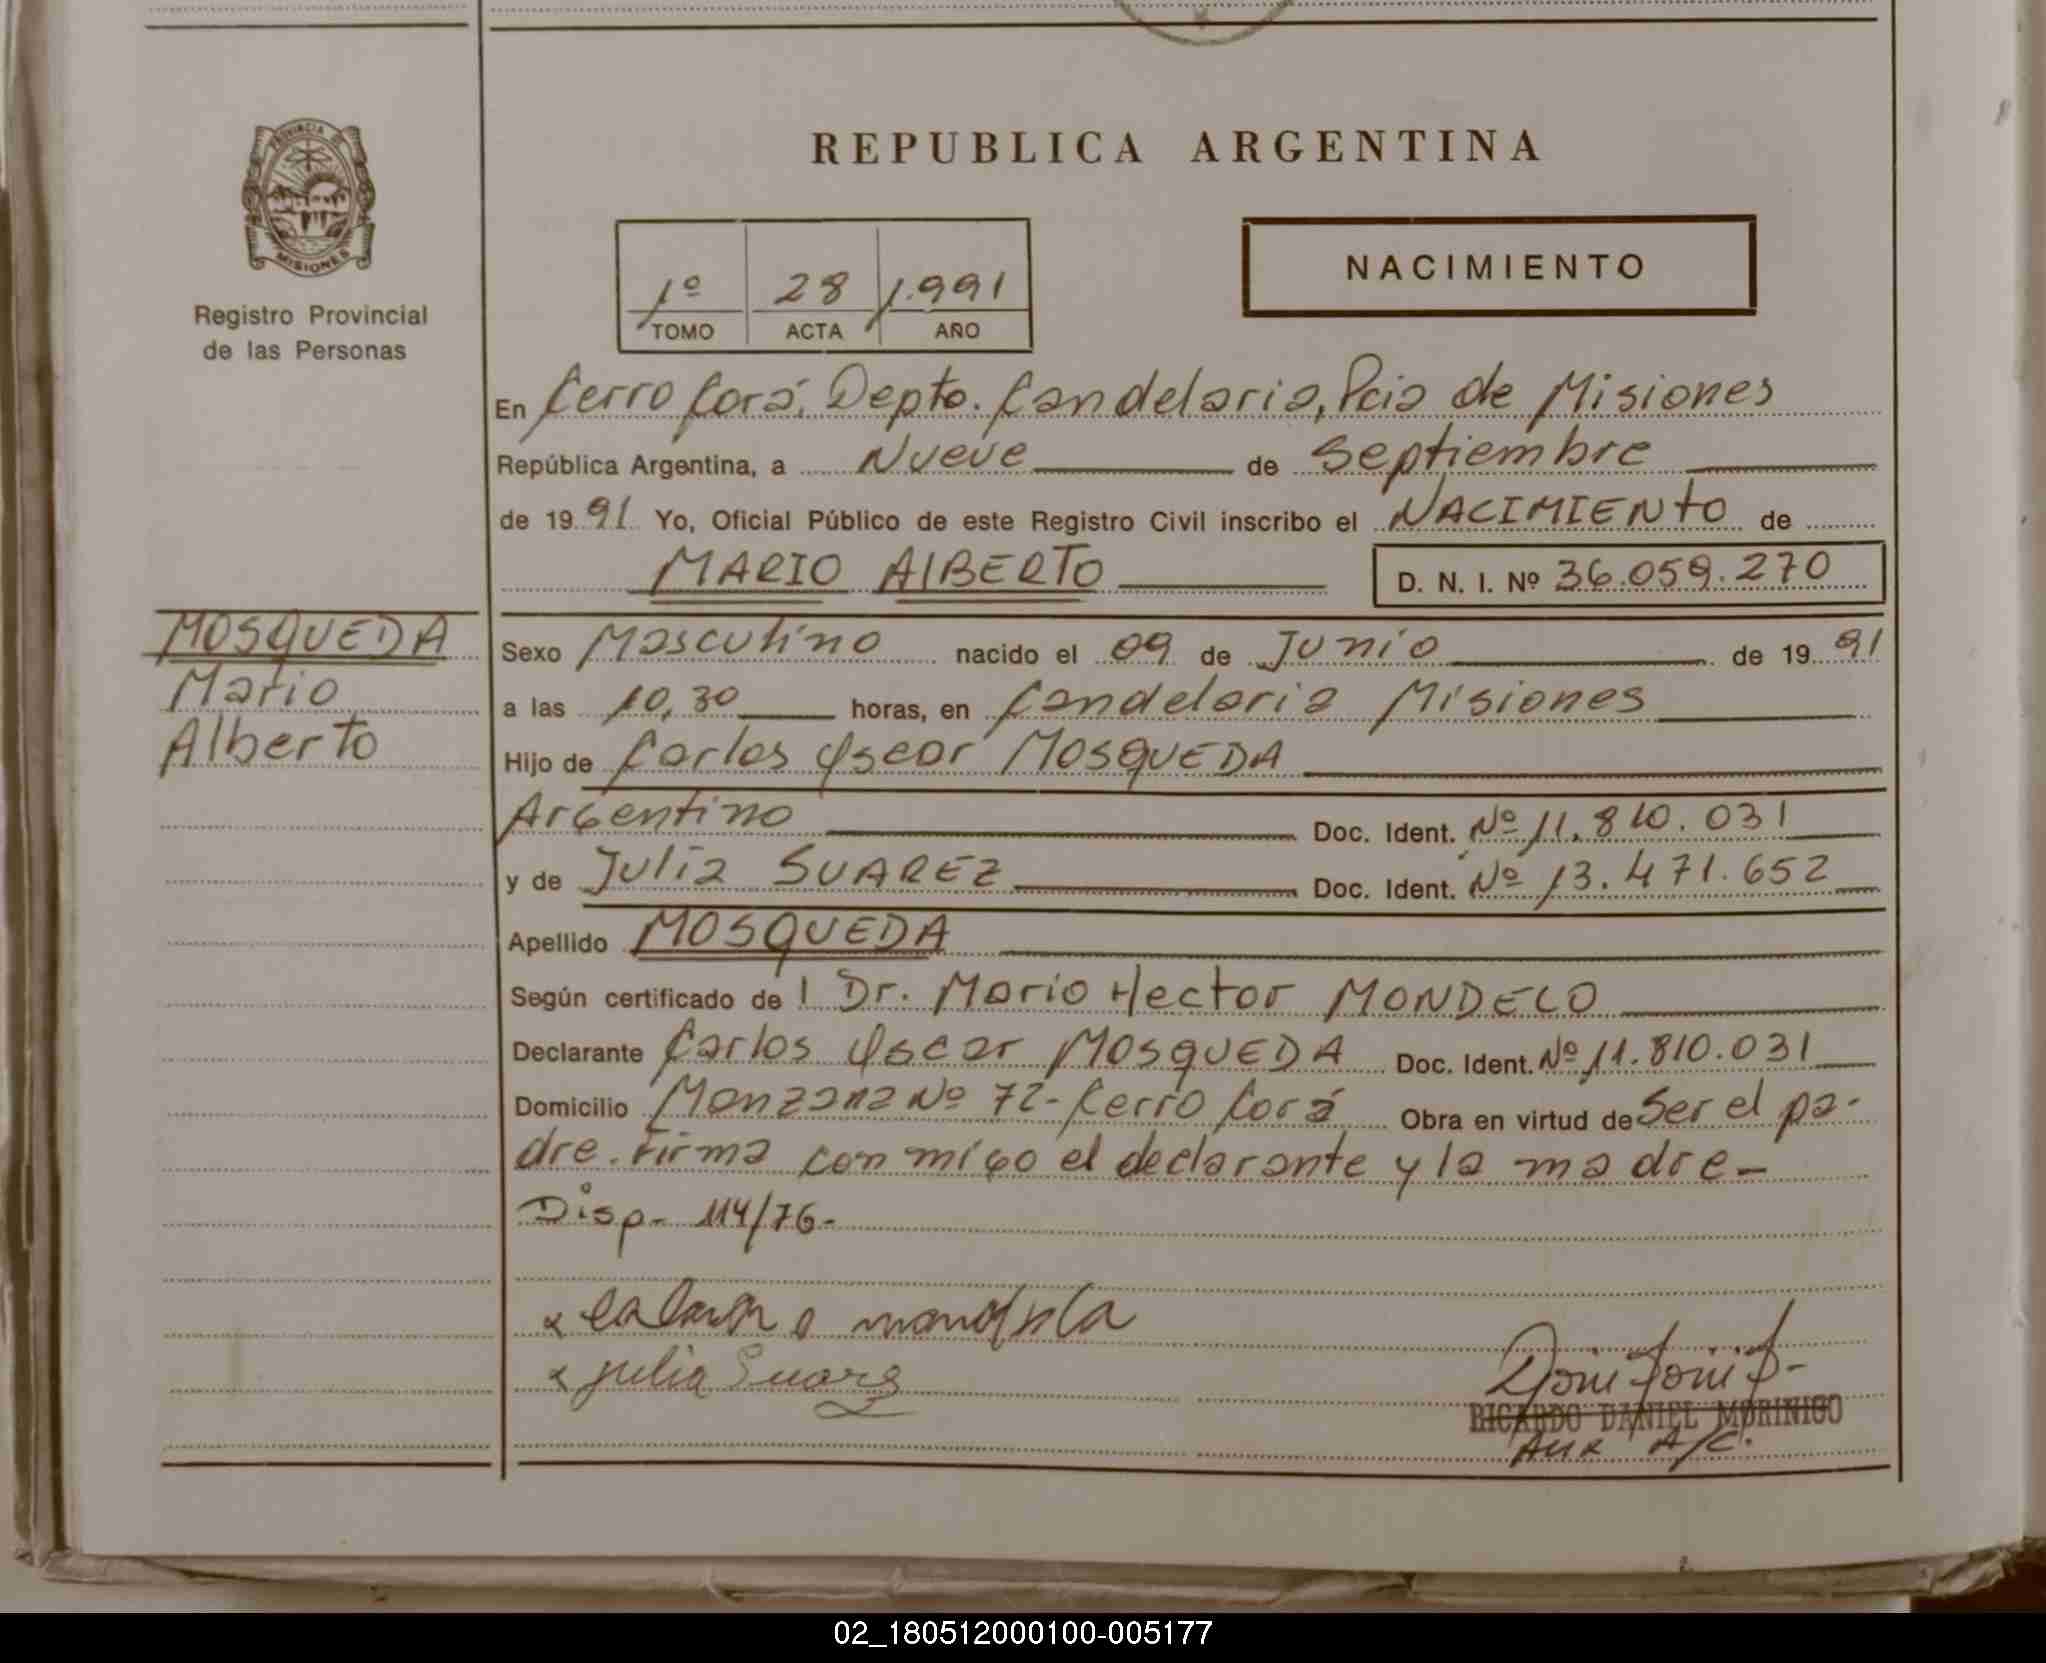 PROVINCIA
MISIONES
Registro Provincial
de las Personas
REPUBLICA ARGENTINA
1º 28 1.991
TOMO ACTA AÑO
NACIMIENTO
En Cerro Corá, Depto. Candelaria, Pcia de Misiones
República Argentina, a Nueve de Septiembre
de 1991 Yo, Oficial Público de este Registro Civil inscribo el NACIMIENTO de
MARIO ALBERTO D. N. I. Nº 36.059.270
MOSQUEDA
Mario
Alberto
Sexo Masculino nacido el 09 de Junio de 1991
a las 10,30 horas, en Candelaria Misiones
Hijo de Carlos Oscar MOSQUEDA
Argentino Doc. Ident. Nº 11.810.031
y de Julia SUAREZ Doc. Ident. Nº 13.471.652
Apellido MOSQUEDA
Según certificado de l Dr. Mario Hector MONDELO
Declarante Carlos Oscar MOSQUEDA Doc. Ident. Nº 11.810.031
Domicilio Manzana Nº 72- Cerro Corá Obra en virtud de Ser el pa-
dre. Firma con migo el declarante y la madre-
Disp- 114/76-
x julia Suarez
RICARDO DANIEL MORINIGO
Aux A/C.
02_180512000100-005177